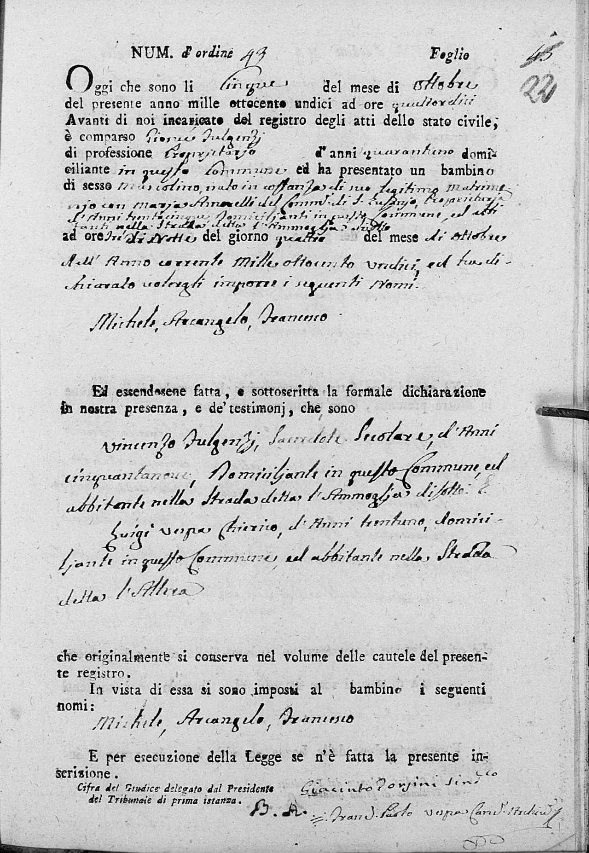 NUM. d'ordine 43 Foglio 43
22
Oggi che sono li Cinque del mese di Ottobre
del presente anno mille ottocento undici ad ore quattordici
Avanti di noi incaricato del registro degli atti dello stato civile,
è comparso Fulgenzj
di professione Proprietario d'anni quarantuno domi-
ciliante in questo Commune ed ha presentato un bambino
di sesso Mascolino, nato in costanza di suo legitimo matrimo-
nio con Maria del Comm. di S. Proprietaria
d'Anni trentacinque Domiciljanti in questo Commune, ed abbi-
tanti nella Strada detta l'Ammoglja disotto
ad ore tre di Notte del giorno quattro del mese di Ottobre
dell' Anno corrente Mille Ottocento Undici, ed ha di-
chiarato volergli imporre i seguenti Nomi.
Michele, Arcangelo, Francesco
Ed essendosene fatta, e sottoscritta la formale dichiarazione
in nostra presenza, e de' testimonj, che sono
Vincenzo Fulgenzj, Sacerdote Secolare, d'Anni
cinquantanove, Domiciljante in questo Commune, ed
abbitante nella Strada detta l'Ammoglja disotto E.
Luigi Vespa Chierico, d'Anni trentuno, domici-
ljante in questo Commune, ed abbitante nella Strada
detta
che originalmente si conserva nel volume delle cautele del presen-
te registro.
In vista di essa si sono imposti al bambino i seguenti
nomi:
Michele, Arcangelo, Francesco
E per esecuzione della Legge se n'è fatta la presente in-
scrizione.
Cifra del Giudice delegato dal Presidente
del Tribunale di prima istanza.
Giacinto Sind.co
B. A. Fran. Paolo Vespa Canc.